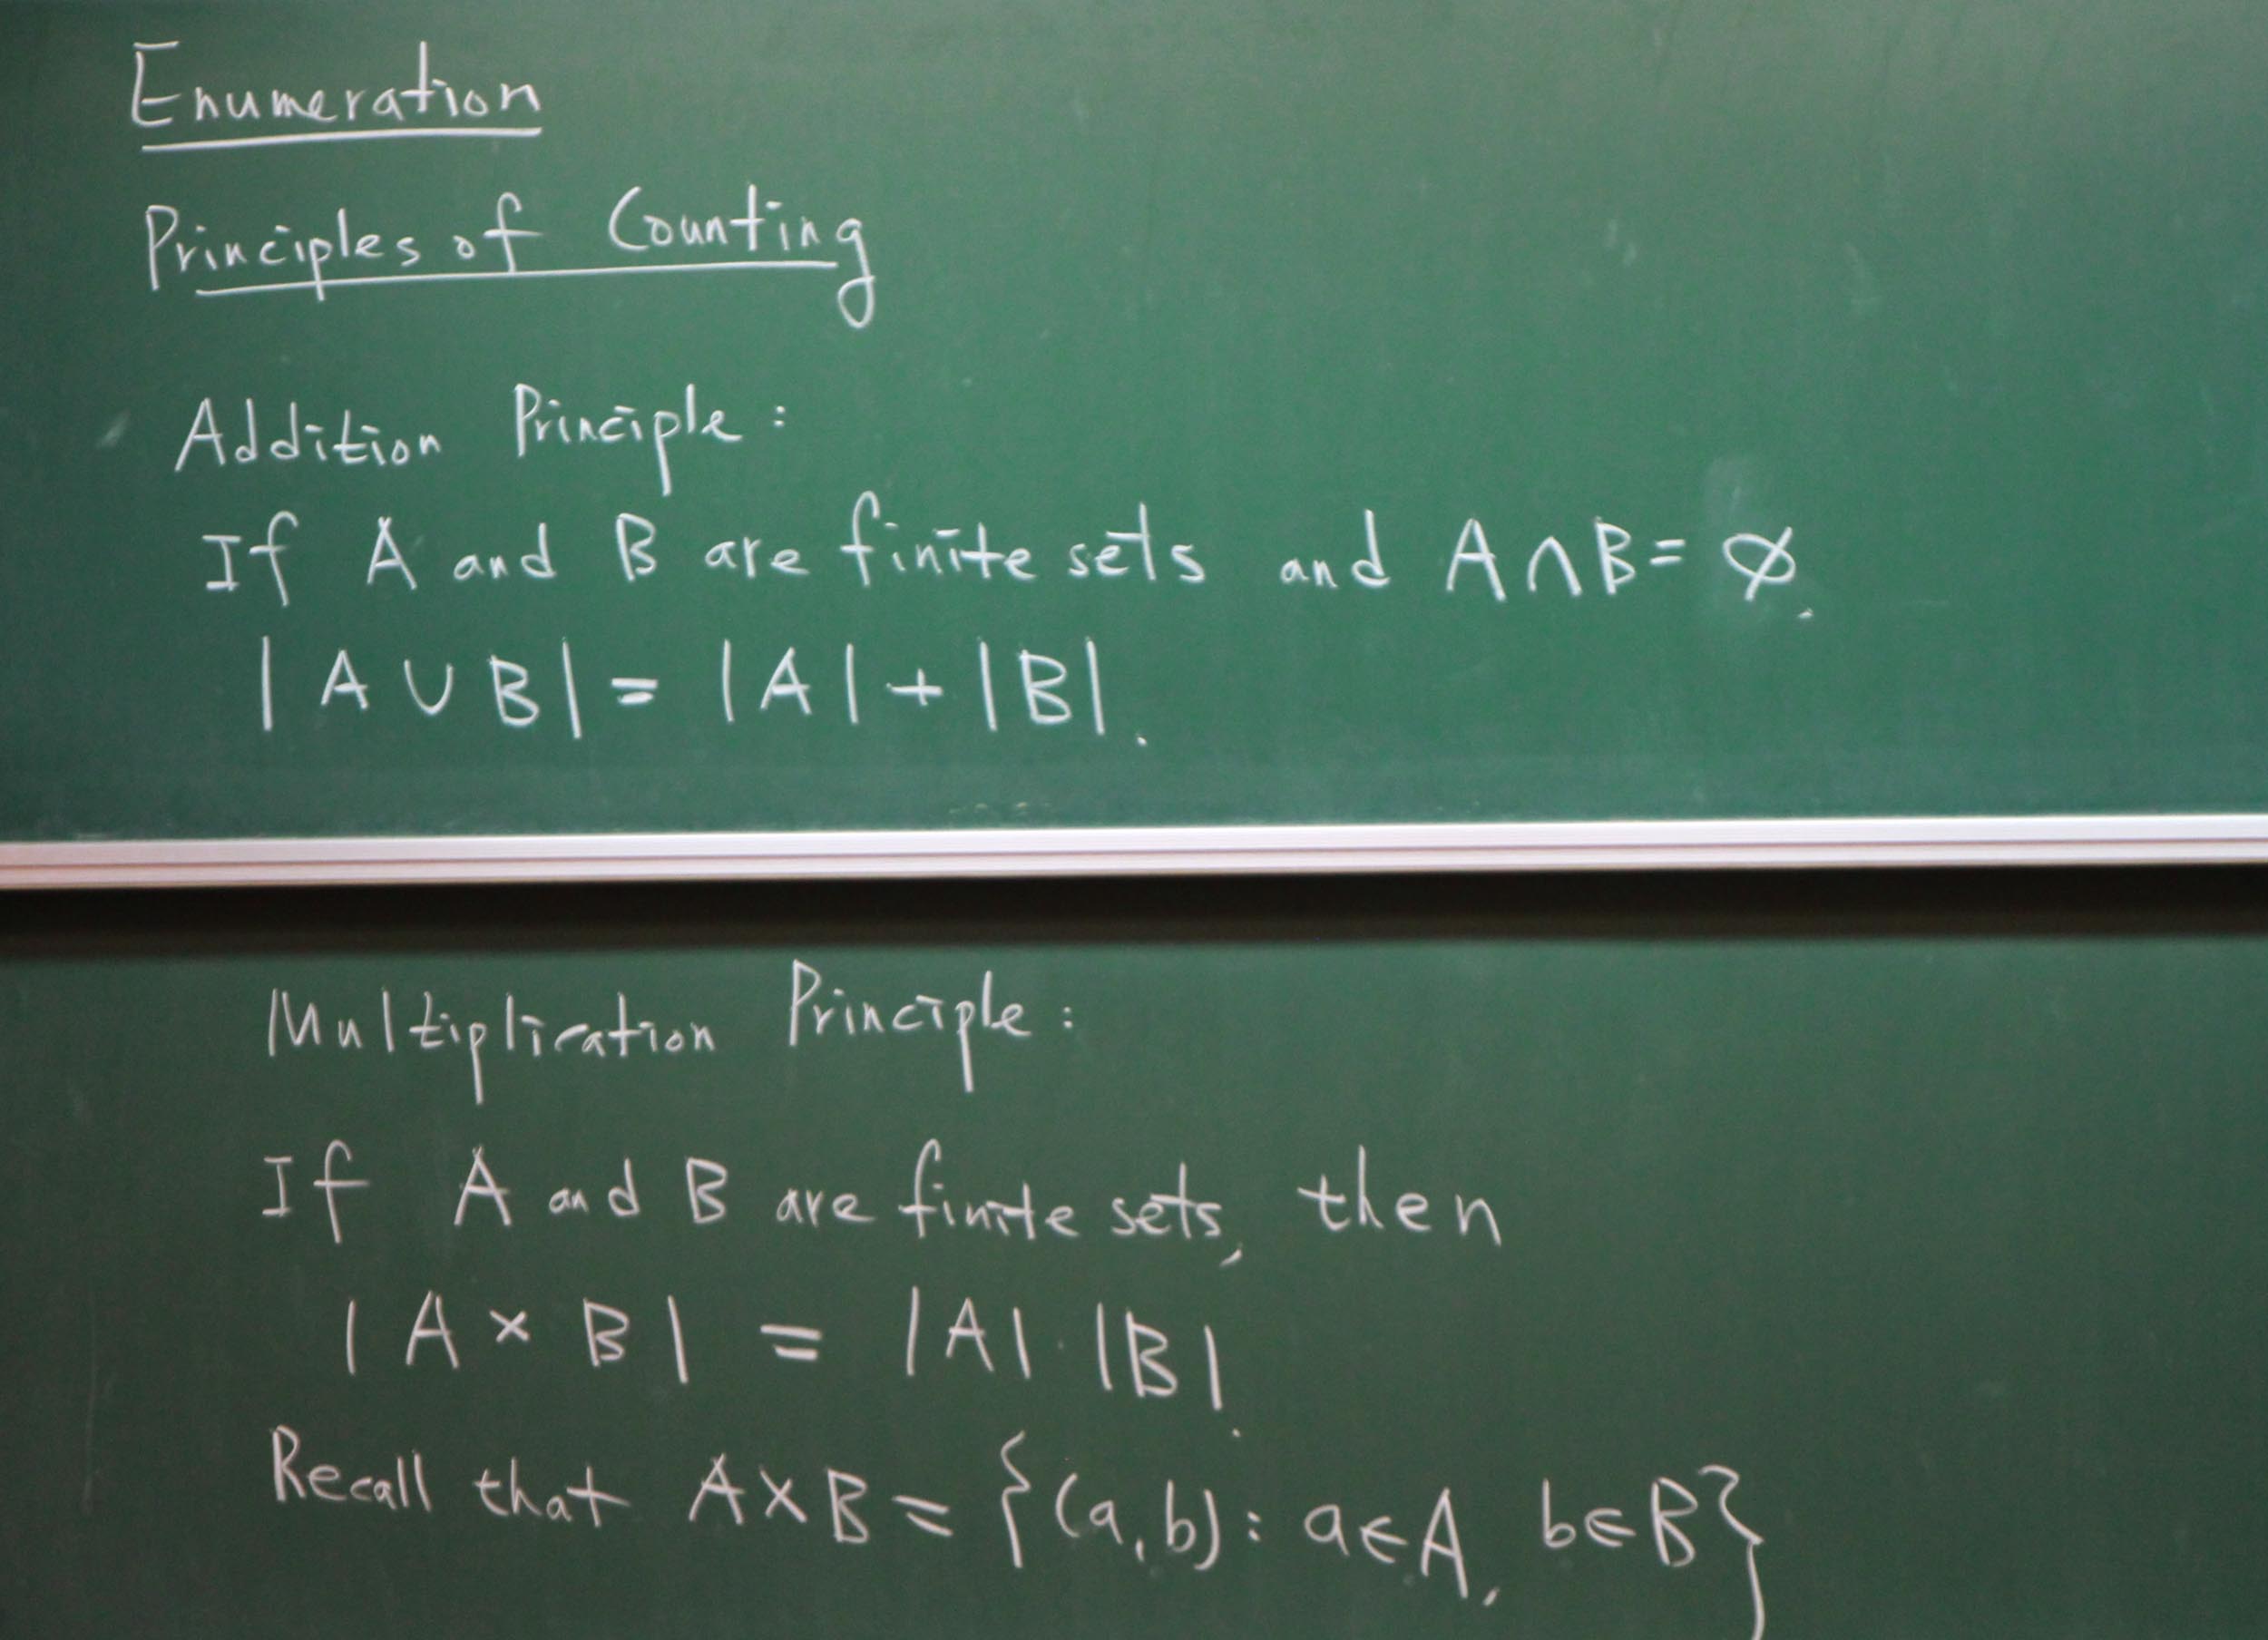 Enumeration
Principles of Counting
Addition Principle:
If A and B are finite sets and A∩B = ∅.
|A ∪ B| = |A| + |B|.
Multiplication Principle:
If A and B are finite sets, then
|A × B| = |A|·|B|.
Recall that A×B = {(a,b): a∈A, b∈B}